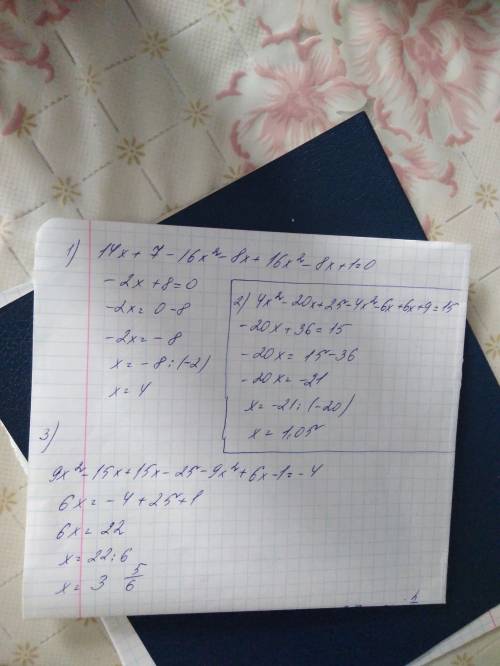 1) 14x + 7 - 16x² - 8x + 16x² - 8x + 1 = 0
- 2x + 8 = 0
- 2x = 0 - 8
- 2x = - 8
x = - 8 : (-2)
x = 4
2) 4x² - 20x + 25 - 4x² - 6x + 6x + 9 = 15
- 20x + 36 = 15
- 20x = 15 - 36
- 20x = - 21
x = - 21 : (- 20)
x = 1,05
3)
9x² - 15x + 15x - 25 - 9x² + 6x - 1 = - 4
6x = - 4 + 25 + 1
6x = 22
x = 22 : 6
x = 3 5/6